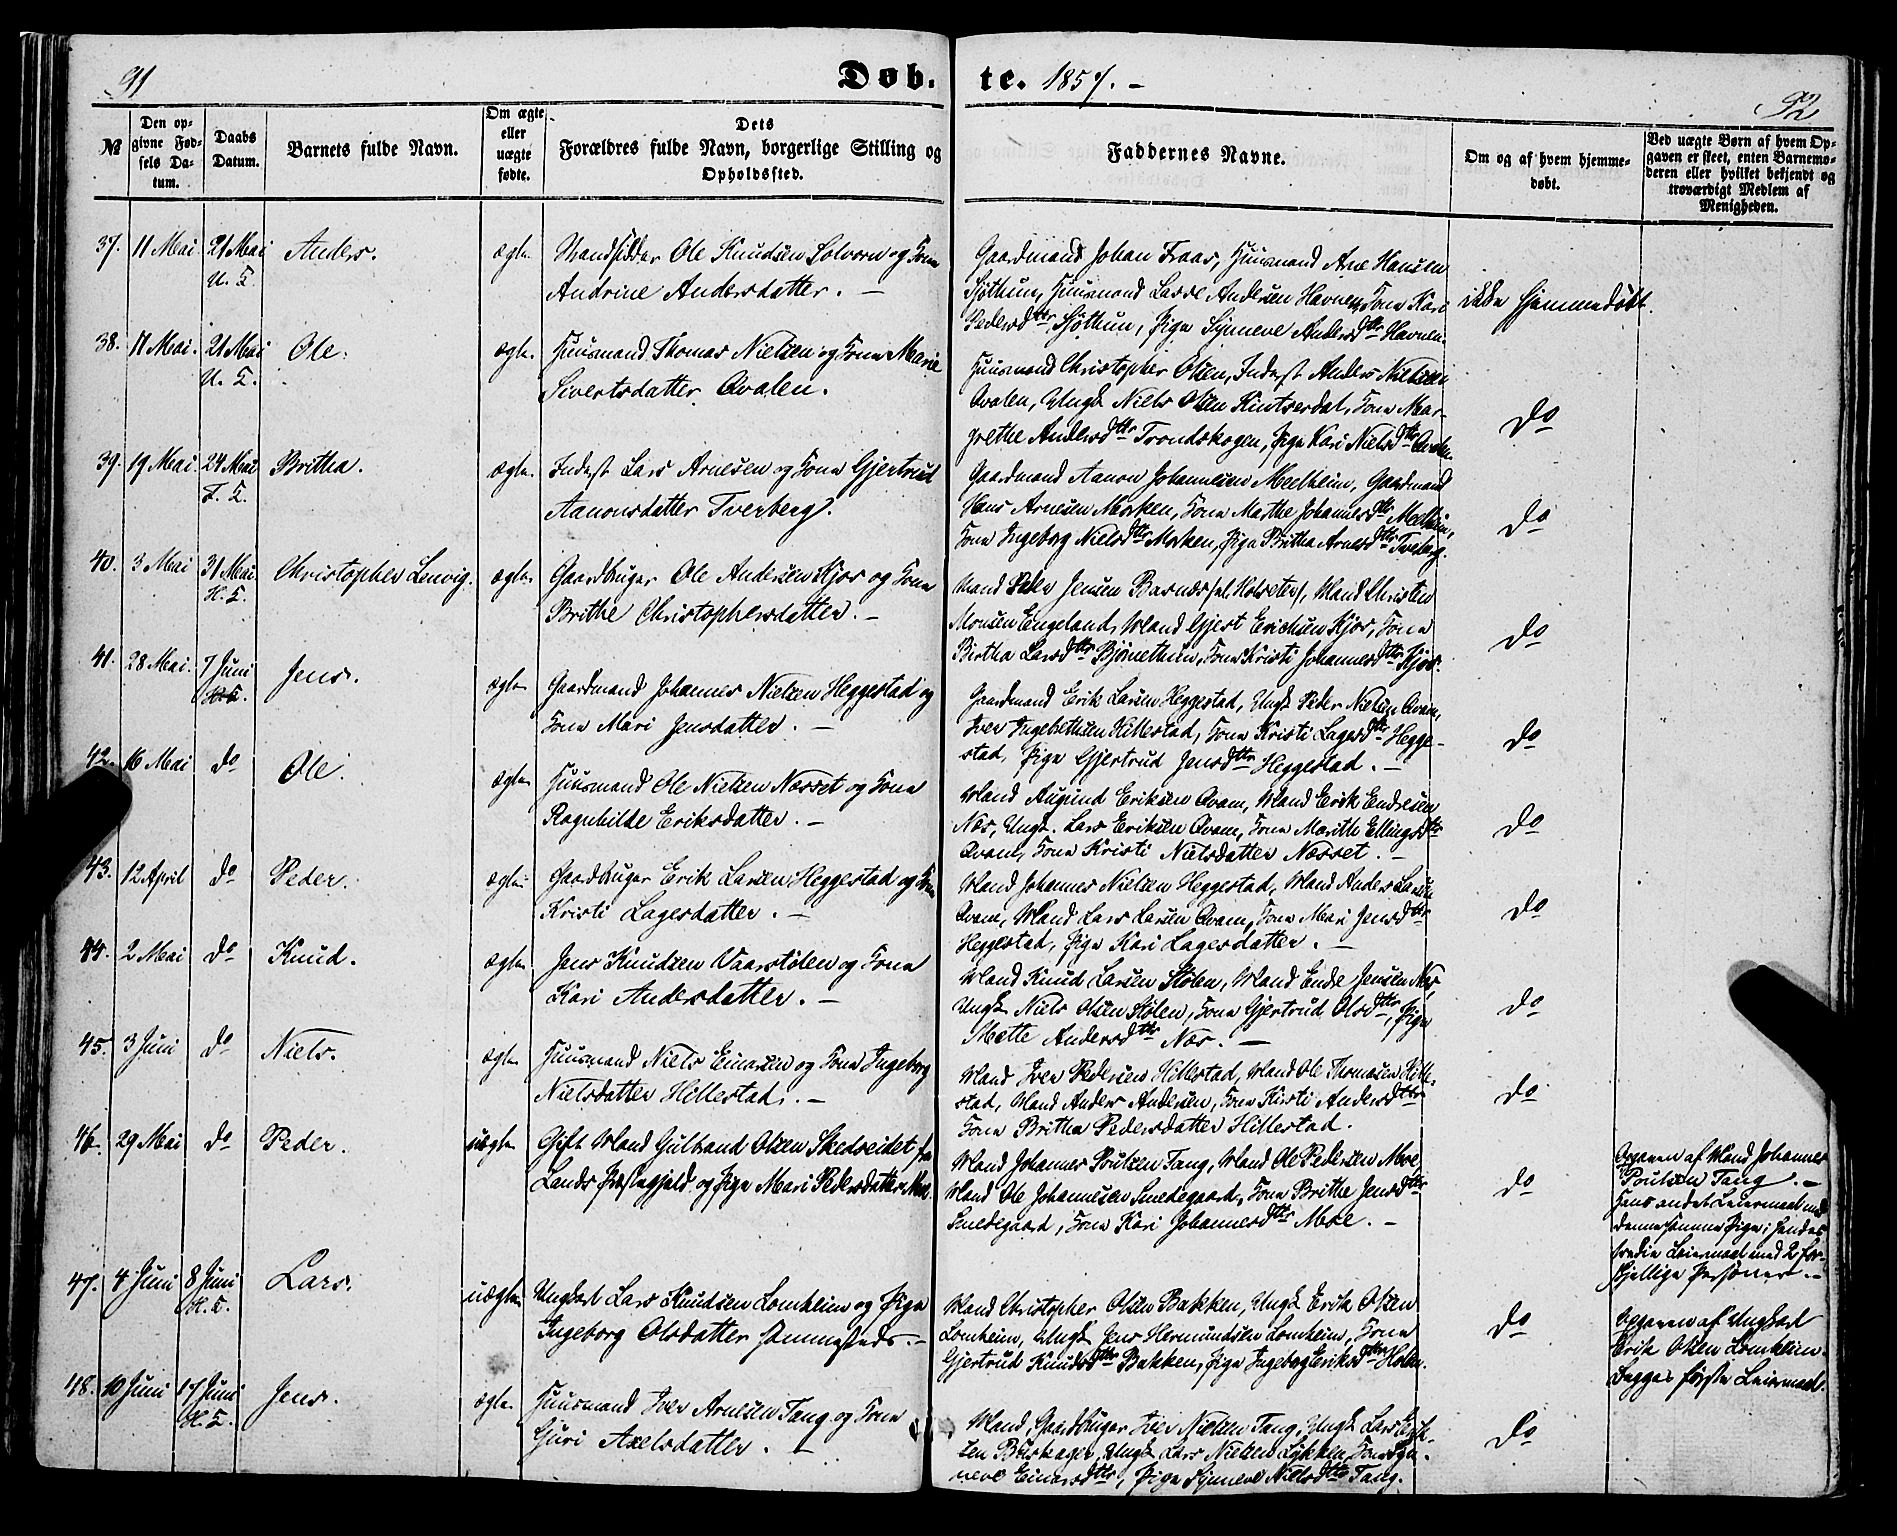 91
Døb-
te. 1857. -
92
№
Den op-
givne Fød-
sels Da-
tum.
Daabs
Datum.
Barnets fulde Navn.
Om ægte
eller
uægte
fødte.
Dets
Forældres fulde Navn, borgerlige Stilling og
Opholdssted.
Faddernes Navne.
Om og af hvem hjemme-
døbt.
Ved uægte Børn af hvem Op-
gaven er skeet, enten Barnemo-
deren eller hvilket bekjendt og
troværdigt Medlem af
Menigheden.
37. 11 Mai 21 Mai Anders. ægte
U. T.
Strandsidder Ole Knudsen Solvorn og Kone
Andrine Andersdatter. -
Gaardmand Johan Fraas, Huusmand Arne Hansen
Sjøthun, Huusmand Lasse Andersen Havnen, Kone Kari
Pedersdttr Sjøthun, Pige Synneve Andersdttr Havnen.
ikke hjemmedøbt.
38. 11 Mai. 21 Mai Ole. ægte.
U. T.
Huusmand Thomas Nielsen og Kone Marie
Sivertsdatter Qvalen.
Huusmand Christopher Olsen, Inderst Anders Nielsen
Qvalen, Ungk Niels Olsen Kintserdal, Kone Mar-
grethe Andersdttr Trondskogen, Pige Kari Nielsdttr Qvalen.
do
39. 19 Mai 24 Mai Britha. ægte.
F. T.
Inderst Lars Arnesen og Kone Gjertrud
Aanonsdatter Tverberg.
Gaardmand Aanon Johannesen Melheim, Gaardmand
Hans Arnesen Morken, Kone Marthe Johannesdttr Melheim,
Kone Ingeborg Nielsdttr Morken, Pige Britha Arnesdttr Tverberg.
do
40. 3 Mai 31 Mai Christopher Lenvig. ægte
H. T.
Gaardbruger Ole Andersen Kjos og Kone
Brithe Christophersdatter. -
Mand Peder Jensen Barnes, Mand Christen
Monsen Engeland, Mand Gjest Erichsen Kjos, Kone
Birtha Larsdttr Bjørnethun, Kone Kristi Johannesdttr Kjos.
do
41. 28 Mai. 7 Juni Jens. ægte
Gaardmand Johannes Nielsen Heggestad og
Kone Mari Jensdatter. -
Gaardmand Erik Larsen Heggestad, Ungk Peder Nielsen Qvam,
Iver Ingebrethsen Hillestad, Kone Kristi Lagesdttr Hegge-
stad, Pige Gjertrud Jensdttr Heggestad. -
do
42. 16 Mai do Ole. ægte
Huusmand Ole Nielsen Næsset og Kone
Ragnhilde Eriksdatter. -
Mand Augund Eriksen Qvam, Mand Erik Endresen
Næs, Ungk. Lars Eriksen Qvam, Kone Marithe Ellingsdttr
Qvam, Kone Kristi Nielsdatter Næsset. -
do
43. 12 April do Peder. ægte
Gaardbruger Erik Larsen Heggestad og Kone
Kristi Lagesdatter. -
Mand Johannes Nielsen Heggestad, Mand Anders Larsen
Qvam, Mand Lars Larsen Qvam, Kone Mari Jensdttr
Heggestad, Pige Kari Lagesdatter. -
do
44. 2 Mai do Knud. ægte
Jens Knudsen Vaarstølen og Kone
Kari Andersdatter. -
Mand Knud Larsen Stølen, Mand Endre Jensen Næs,
Ungk Niels Olsen Stølen, Kone Gjertrud Olsdttr, Pige
Mette Andersdttr Næs. -
do
45. 3 Juni do Niels. ægte
Huusmand Niels Einarsen og Kone Ingeborg
Nielsdatter Hillestad. -
Mand Iver Pedersen Hillestad, Mand Ole Thomasen Hille-
stad, Mand Anders Andersen, Kone Kirsti Andersdttr
Kone Britha Pedersdatter Hillestad.
do
46. 29 Mai do Peder. uægte
Gift Mand Gulbrand Olsen Skedseidet fra
Lands Præstegjeld og Pige Mari Pedersdatter Moe
Mand Johannes Poulsen Tang, Mand Ole Pedersen Moe,
Mand Ole Johannesen Smedegaard, Kone Brithe Jensdttr
Smedegaard, Kone Kari Johannesdttr Moe. -
do
Opgaven af Mand Johannes
Poulsen Tang. -
Hans andet Leiermaal med
denne samme Pige; hendes
tredie Leiermaal med 2 for-
skjellige Personer. -
47. 4 Juni 8 Juni Lars. uægte
H. T.
Ungkarl Lars Knudsen Lomheim og Pige
Ingeborg Olsdatter sammesteds. -
Mand Christopher Olsen Bakken, Ungk Erik Olsen
Lomheim, Ungk Jens Hermundsen Lomheim, Kone
Gjertrud Knudsdttr Bakken, Pige Ingeborg Eriksdttr Holen.
do
Opgaven af Ungkarl
Erik Olsen Lomheim.
Begges første Leiermaal.
48. 10 Juni 17 Juni Jens. ægte.
H. T.
Huusmand Iver Arnesen Tang og Kone
Guri Axelsdatter. -
Mand, Gaardbruger Iver Nielsen Tang, Ungk Lars Erik-
sen Buskager, Ungk Lars Nielsen Lykken, Kone Syn-
neve Einarsdttr, Pige Synneve Nielsdttr Tang.
do